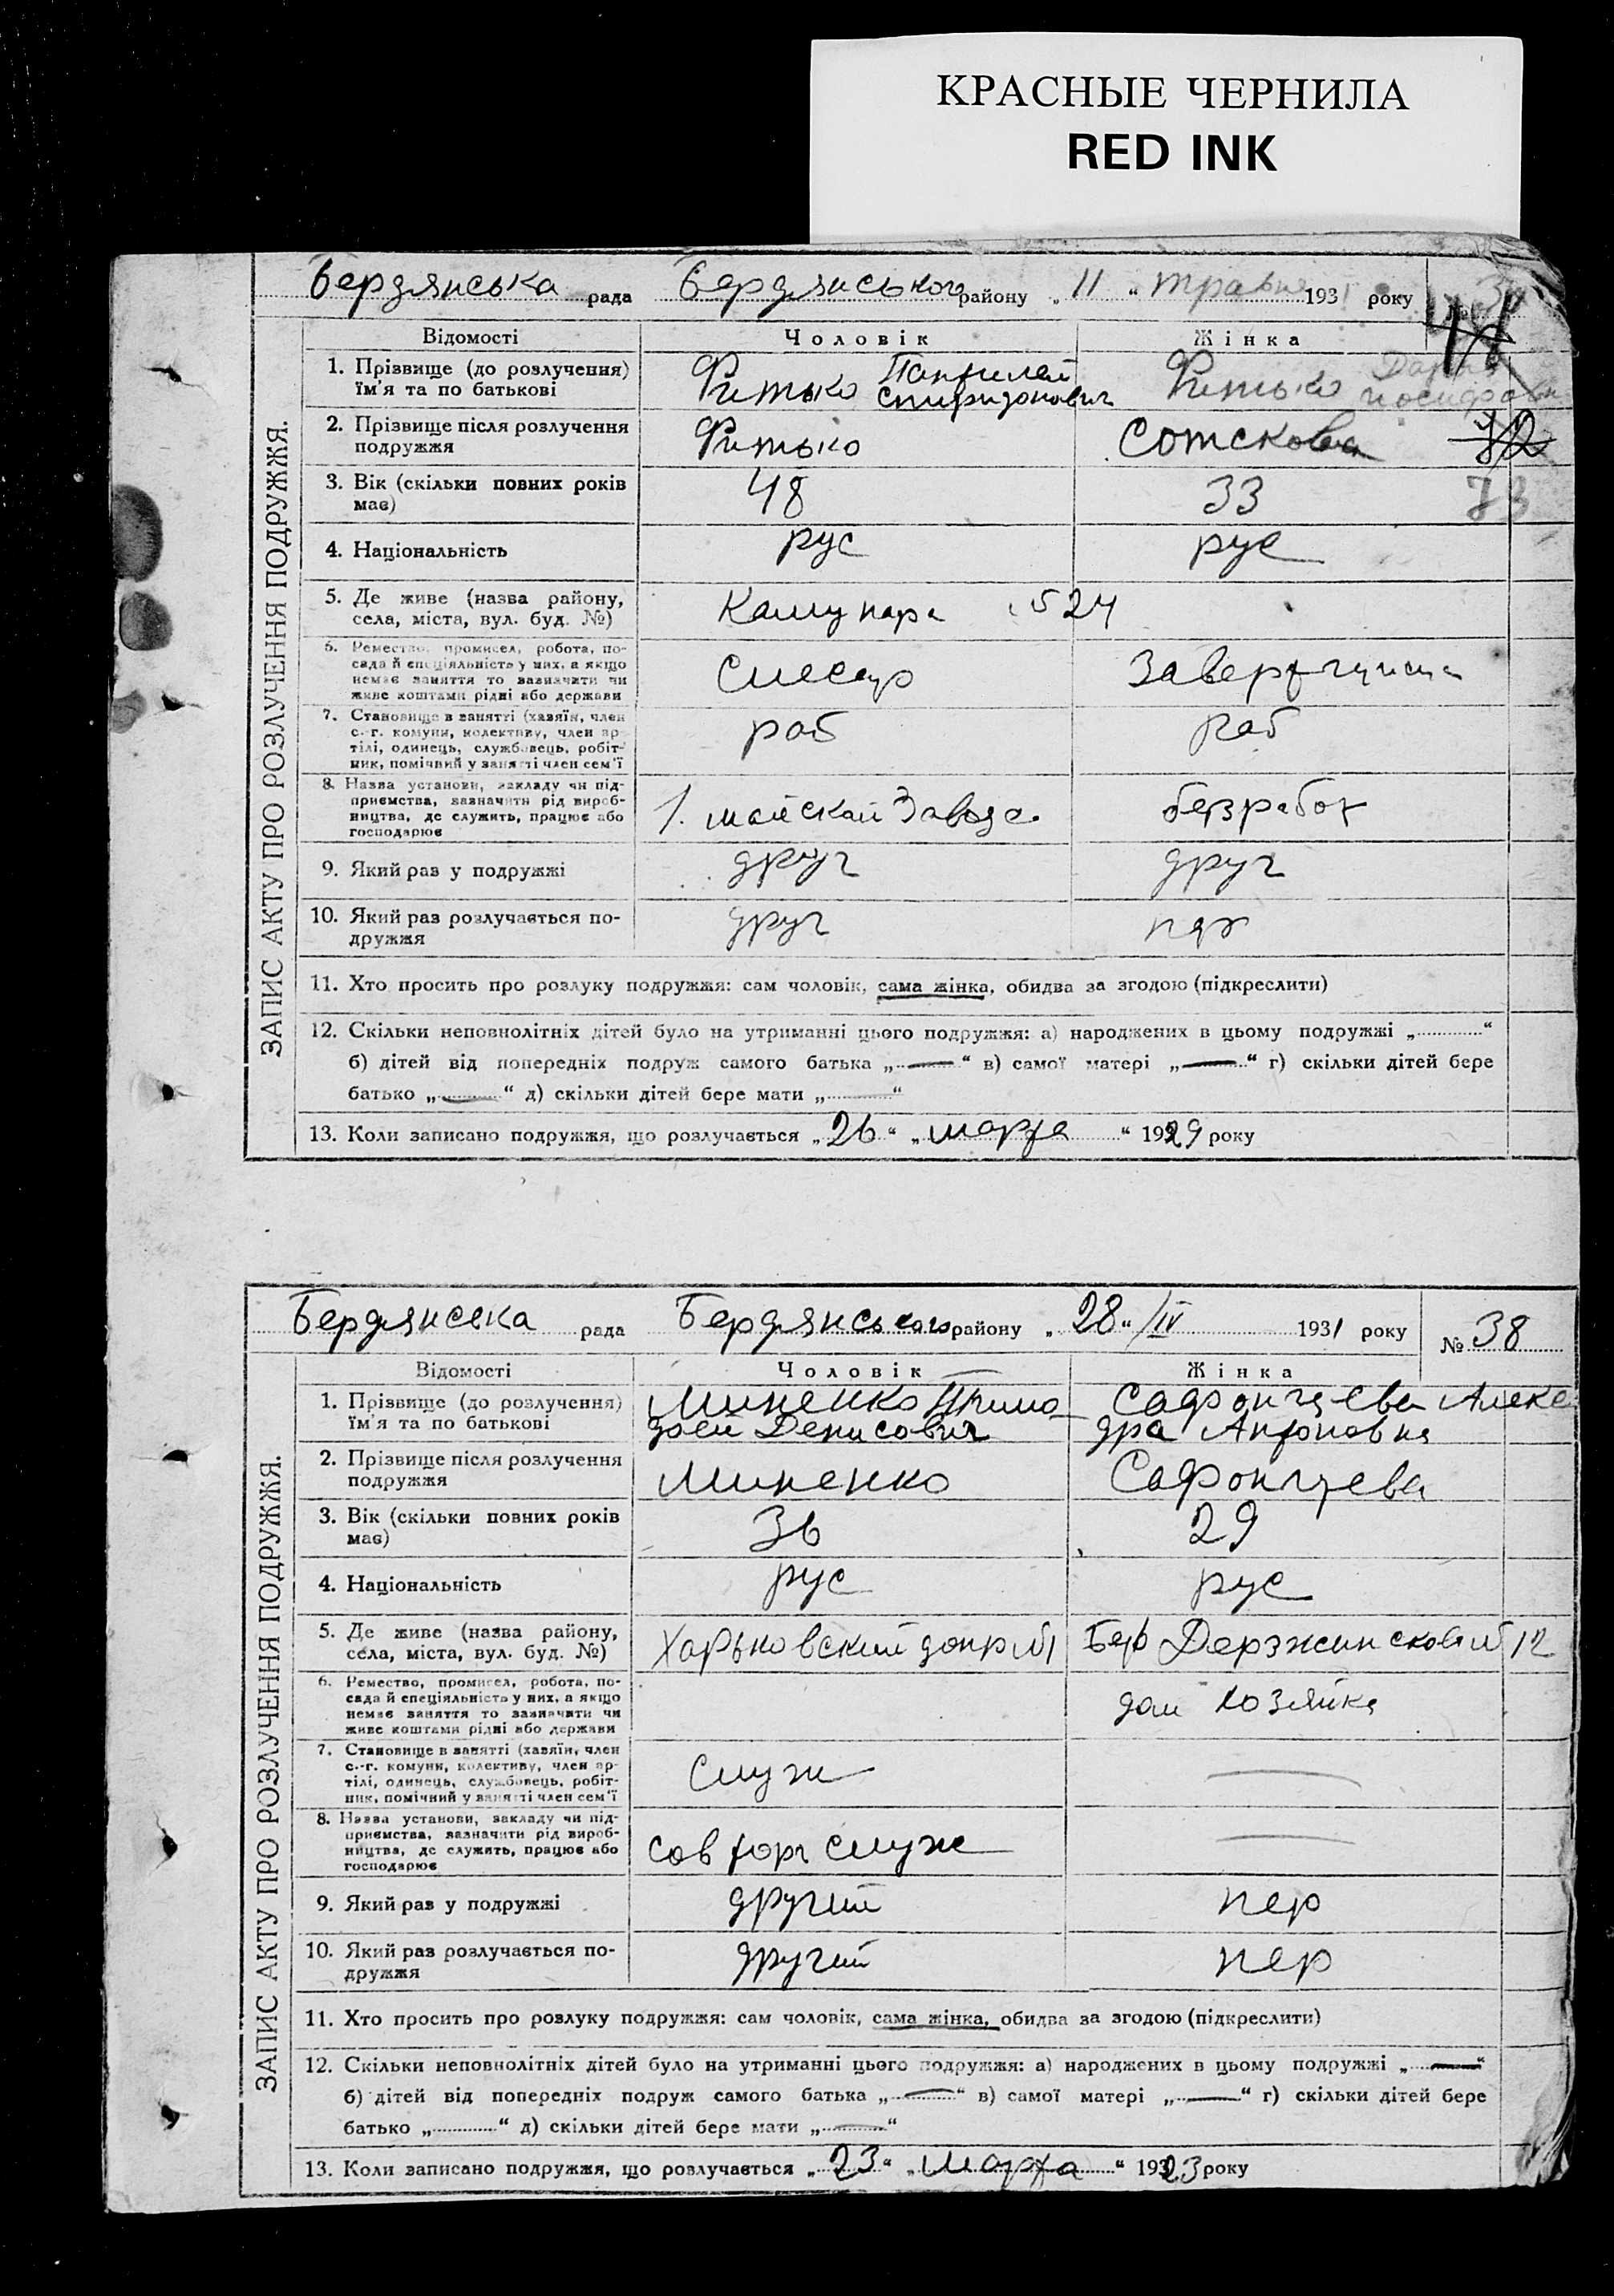 КРАСНЫЕ ЧЕРНИЛА
RED INK
Бердянська рада Бердянського району „11“ травня 1931 року
Відомості Чоловік Жінка
ЗАПИС АКТУ ПРО РОЗЛУЧЕННЯ ПОДРУЖЖЯ.
1. Прізвище (до розлучення) їм'я та по батькові
Фитько Панфилей Спиридонович
Фитько
2. Прізвище після розлучення подружжя
Фитько
Сотскова
3. Вік (скільки повних років має)
48
33
73
4. Національність
рус
рус
5. Де живе (назва району, села, міста, вул. буд. №)
24
6. Ремество, промисел, робота, посада й спеціяльність у них, а якщо немає заняття то зазначити чи живе коштами рідні або держави
Слесар
7. Становище в занятті (хазяїн, член с.-г. комуни, колективу, член артілі, одинець, службовець, робітник, помічний у занятті член сем'ї
раб
раб
8. Назва установи, закладу чи підприємства, зазначити рід виробництва, де служить, працює або господарює
1. майский Завода
безработ
9. Який раз у подружжі
друг
друг
10. Який раз розлучається подружжя
друг
11. Хто просить про розлуку подружжя: сам чоловік, сама жінка, обидва за згодою (підкреслити)
12. Скільки неповнолітніх дітей було на утриманні цього подружжя: а) народжених в цьому подружжі „............“
б) дітей від попередніх подруж самого батька „—“ в) самої матері „—“ г) скільки дітей бере
батько „—“ д) скільки дітей бере мати „—“
13. Коли записано подружжя, що розлучається „26“ „марта“ 1929 року
Бердянська рада Бердянського району „28“/IV 1931 року № 38
Відомості Чоловік Жінка
ЗАПИС АКТУ ПРО РОЗЛУЧЕННЯ ПОДРУЖЖЯ.
1. Прізвище (до розлучення) їм'я та по батькові
Миненко Тимофей Денисович
Сафонцева Александра Антоновна
2. Прізвище після розлучення подружжя
Миненко
Сафонцева
3. Вік (скільки повних років має)
36
29
4. Національність
рус
рус
5. Де живе (назва району, села, міста, вул. буд. №)
Харьковский допр №1
12
6. Ремество, промисел, робота, посада й спеціяльність у них, а якщо немає заняття то зазначити чи живе коштами рідні або держави
дом хозяйка
7. Становище в занятті (хазяїн, член с.-г. комуни, колективу, член артілі, одинець, службовець, робітник, помічний у занятті член сем'ї
Служ
—
8. Назва установи, закладу чи підприємства, зазначити рід виробництва, де служить, працює або господарює
сов торг служ
—
9. Який раз у подружжі
другий
пер
10. Який раз розлучається подружжя
другий
пер
11. Хто просить про розлуку подружжя: сам чоловік, сама жінка, обидва за згодою (підкреслити)
12. Скільки неповнолітніх дітей було на утриманні цього подружжя: а) народжених в цьому подружжі „—“
б) дітей від попередніх подруж самого батька „—“ в) самої матері „—“ г) скільки дітей бере
батько „............“ д) скільки дітей бере мати „—“
13. Коли записано подружжя, що розлучається „23“ „Марта“ 1923 року